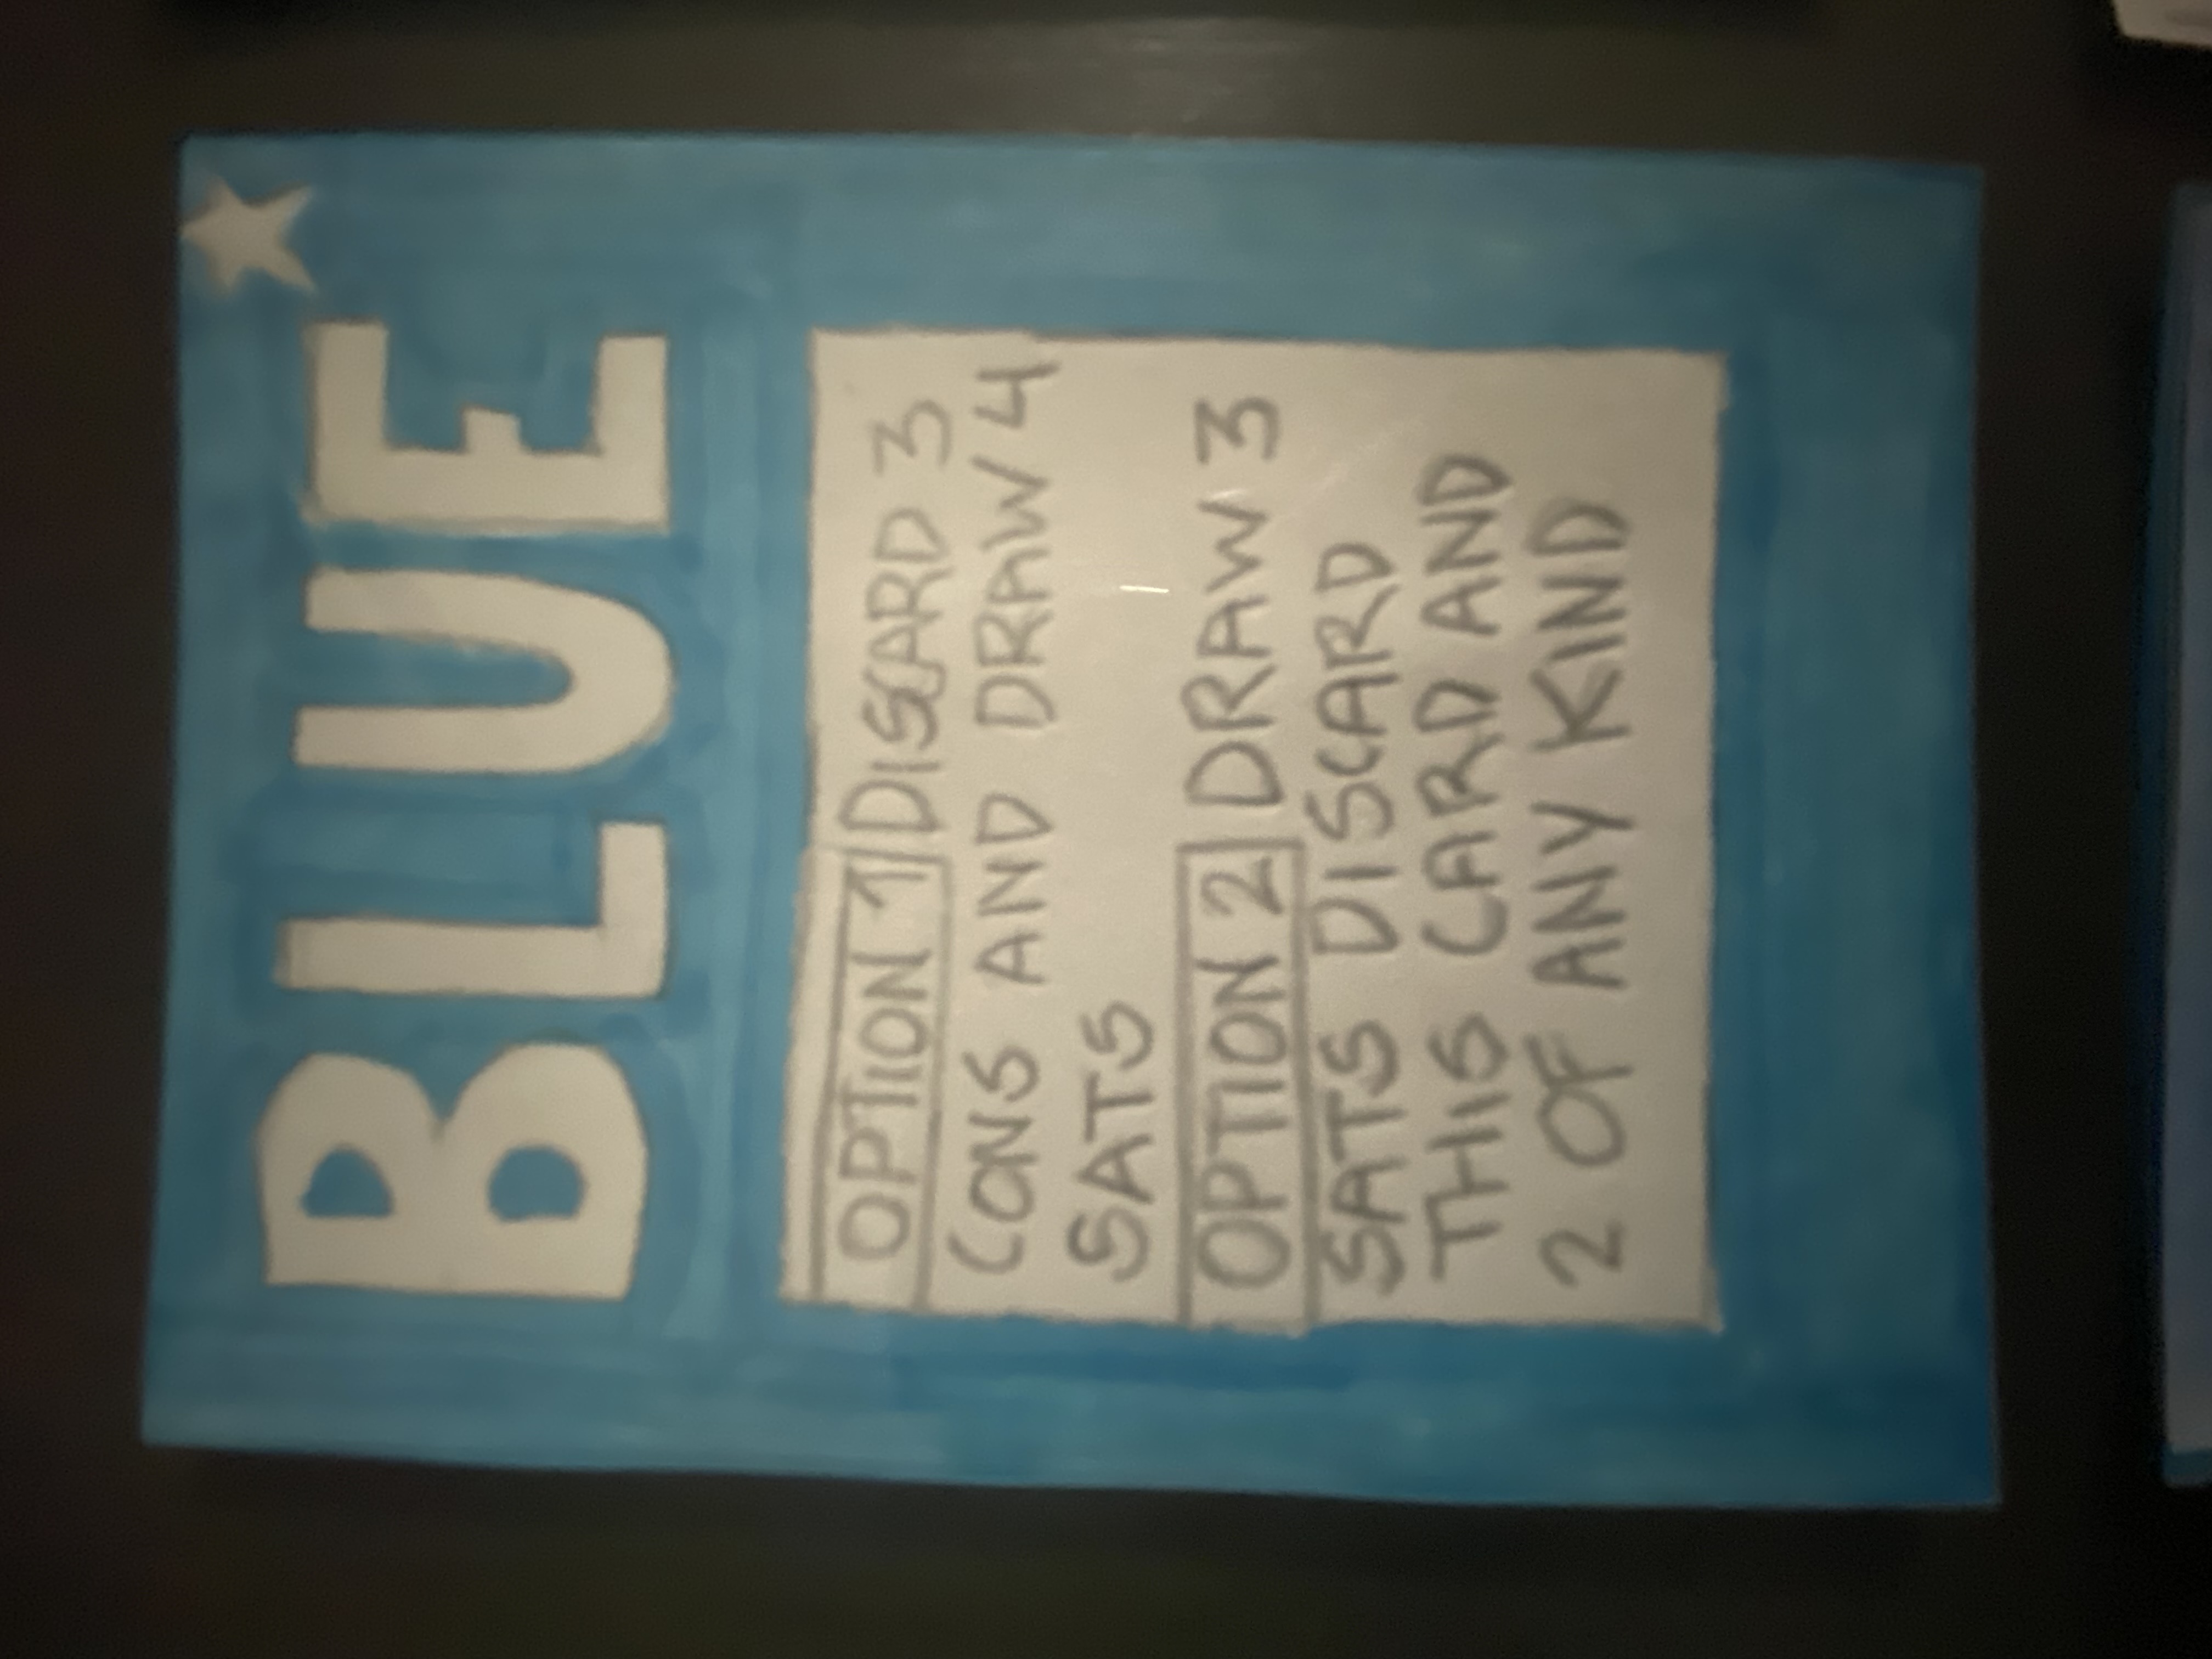 BLUE
OPTION 1 DISCARD 3
CONS AND DRAW 4
SATS
OPTION 2 DRAW 3
SATS DISCARD
THIS CARD AND
2 OF ANY KIND